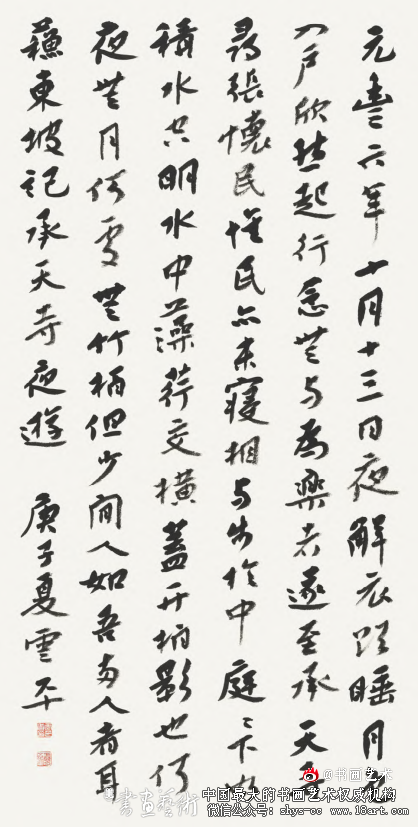 元豊六年十月十三日夜解衣欲睡月色
入户欣然起行念无与为樂者遂至承天寺
尋張懷民懷民亦未寝相与步於中庭〻下如
積水空明水中藻荇交横蓋竹柏影也何
夜无月何處无竹柏但少閒人如吾两人者耳
蘇東坡記承天寺夜遊
庚子夏雲
@书画艺术
書畫藝術
中国最大的书画艺术权威机构
公众号：shys-cc www.18art.com